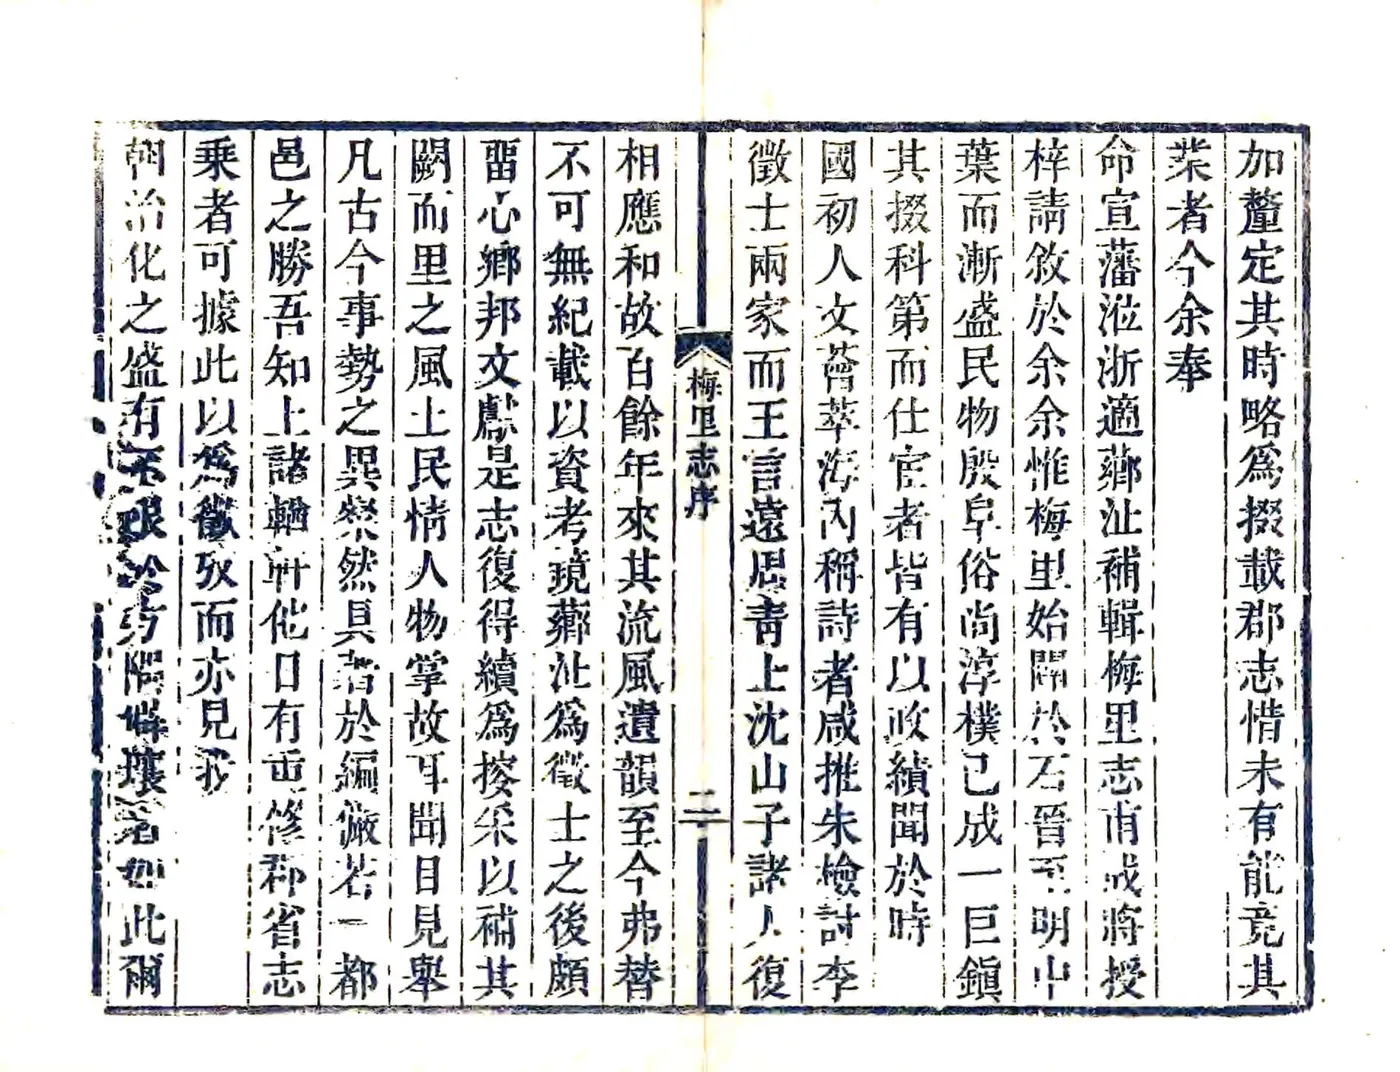 加釐定其時略爲掇載郡志惜未有能竟其
業者今余奉
命宣藩涖浙適薌沚補輯梅里志甫成將授
梓請敘於余余惟梅里始闢於石晉至明中
葉而漸盛民物殷阜俗尚淳樸已成一巨鎮
其掇科第而仕宦者皆有以政績聞於時
國初人文薈萃海內稱詩者咸推朱檢討李
徵士兩家而王言遠周青士沈山子諸人復
梅里志序
二
相應和故百餘年來其流風遺韻至今弗替
不可無紀載以資考鏡薌沚爲徵士之後頗
畱心鄉邦文獻是志復得續爲採以補其
闕而里之風土民情人物掌故耳聞目見舉
凡古今事勢之異粲然具著於編儼若一都
邑之勝吾知上諸輶軒他日有重修郡省志
乘者可據此以爲徵攷而亦見我
朝治化之盛有不限於方隅僻壤者如此爾